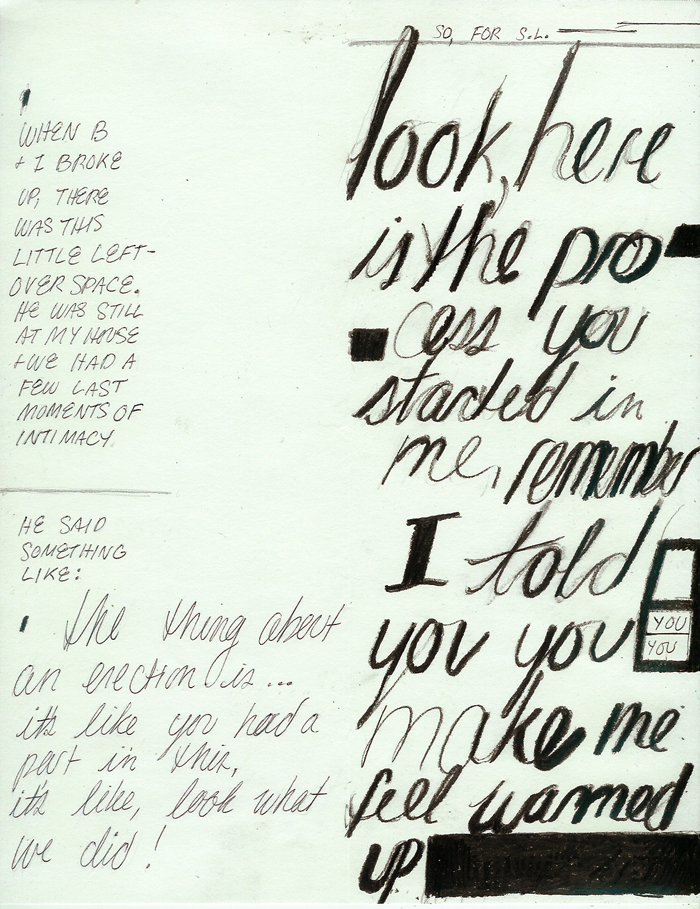 SO, FOR S.L.
WHEN B
+ I BROKE
UP, THERE
WAS THIS
LITTLE LEFT-
OVER SPACE.
HE WAS STILL
AT MY HOUSE
+ WE HAD A
FEW LAST
MOMENTS OF
INTIMACY.
HE SAID
SOMETHING
LIKE:
the thing about
an erection is...
it's like you had a
part in this,
it's like, look what
we did!
look, here
is the pro-
cess you
started in
me, remember
I told
you you
YOU
YOU
make me
feel warmed
up